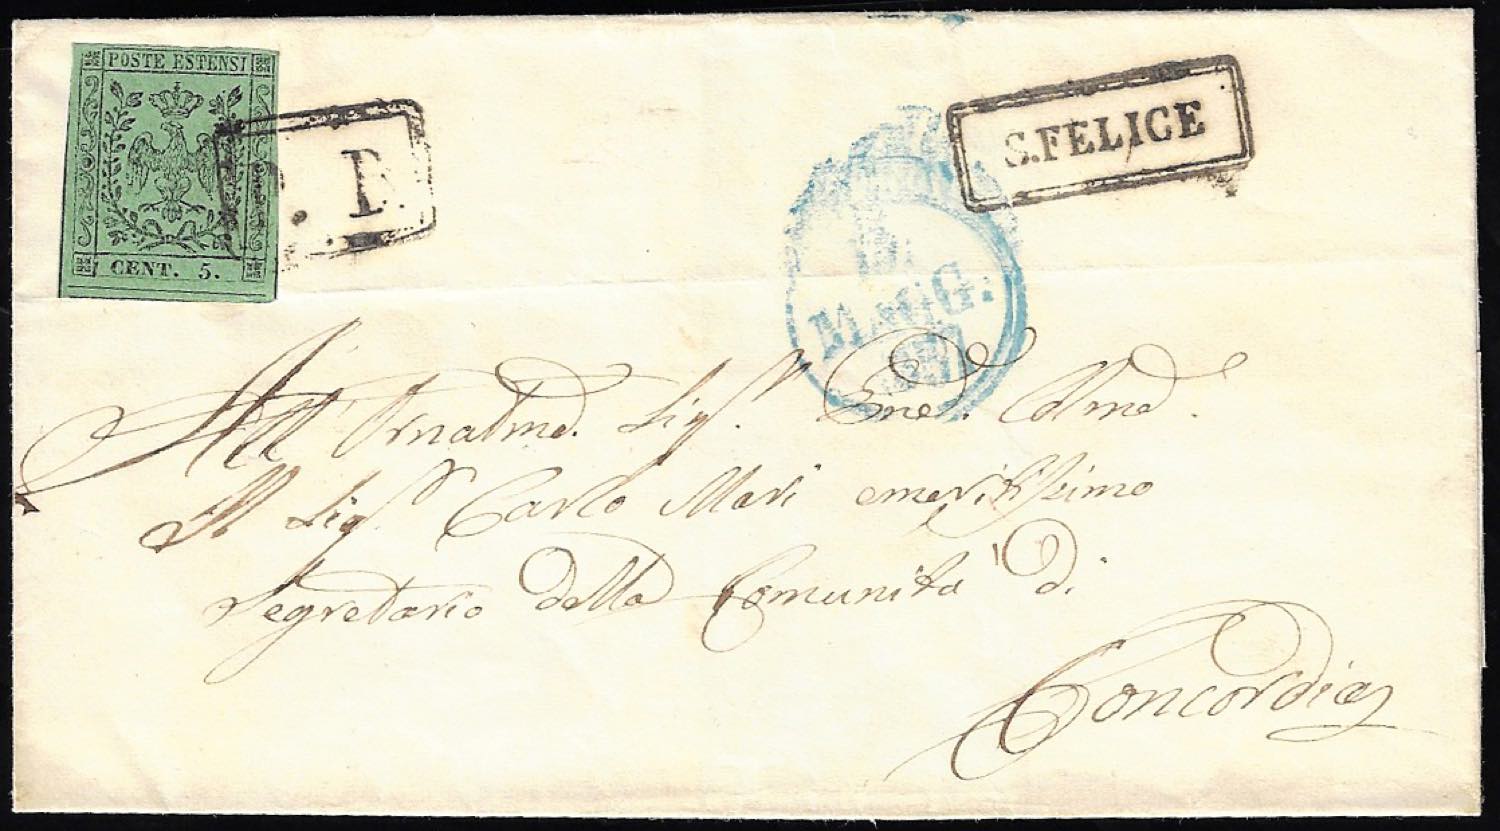 POSTE ESTENSI
CENT. 5.
. D.
S. FELICE
MAGG:
All' Ornatmo. Sigr. Colmo.
Il Sigr. Carlo Mari emeritissimo
Segretario della Comunità di
Concordia